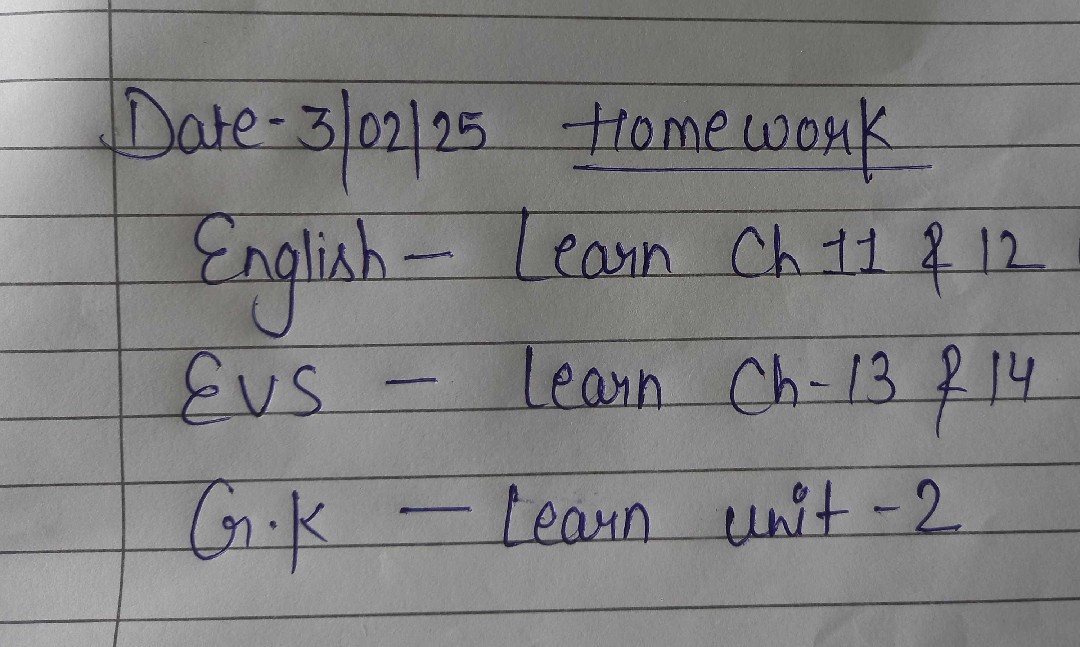 Date-3/02/25 Homework
English - Learn Ch 11 & 12
EVS - Learn Ch-13 & 14
G.K - Learn unit-2